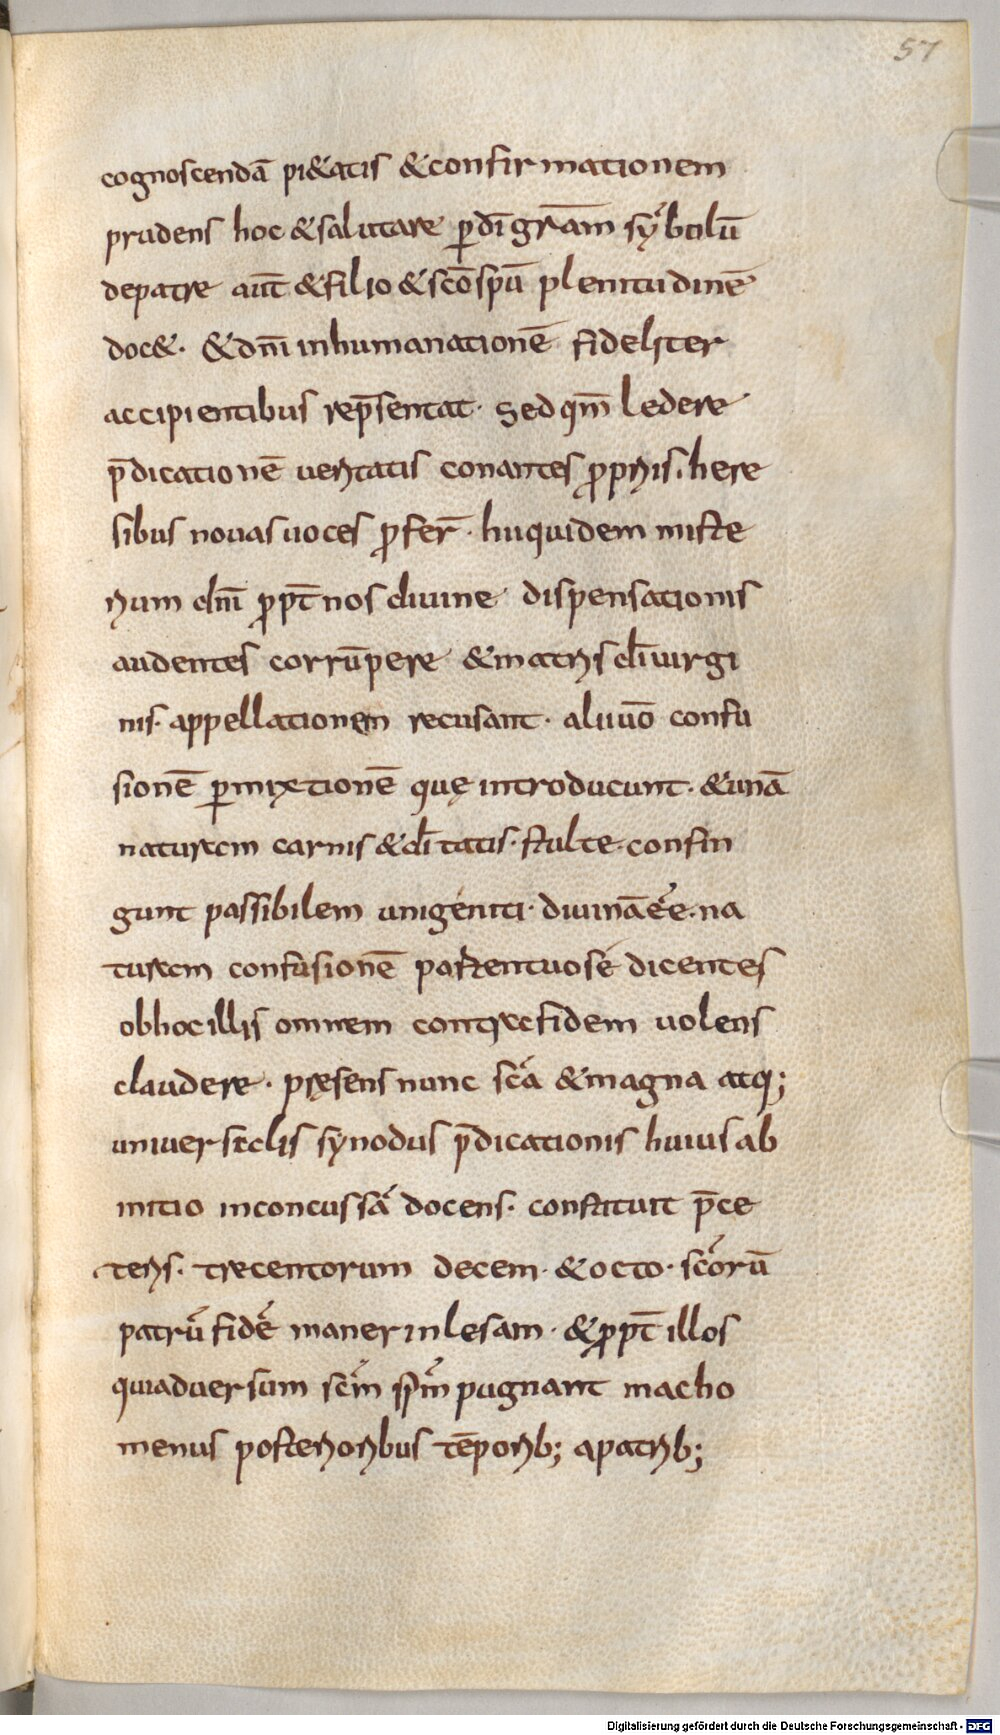 57
cognoscendā pi&atis &confirmationem
prudens hoc &salutare ꝑdīgrām sẏbolū
depatre aūt &filio &scōspū plenitudinē
doc&· &dnī inhumanationē fideliter
accipientibus rep̄sentat· Sed qm̄ ledere
p̄dicationē ueritatis conantes ꝓpriis· here
sibus nouas uoces ꝓfer̄· hii quidem miste
rium dnī ꝓpt̄ nos diuine dispensationis
audentes corrūpere &matris dī uirgi
nis· appellationem recusant· alii uō confu
sionē ꝑmixtionē quę introducunt· &unā
naturam carnis &dītatis· stulte· confin
gunt passibilem unigeniti· diuinā eē· na
turam confusionē portentuose dicentes
obhoc illis omnem contra fidem uolens
claudere· pręsens nunc scā &magna atq;
uniuersalis synodus p̄dicationis huius ab
initio inconcussā docens· constituit p̄ce
teris· trecentorum decem· &octo· scōrū
patrū fidē maner inlesam· &ꝓpt̄ illos
quiaduersum scm̄ spm̄ pugnant macho
menus posterioribus tēporib; apatrib;
Digitalisierung gefördert durch die Deutsche Forschungsgemeinschaft - DFG